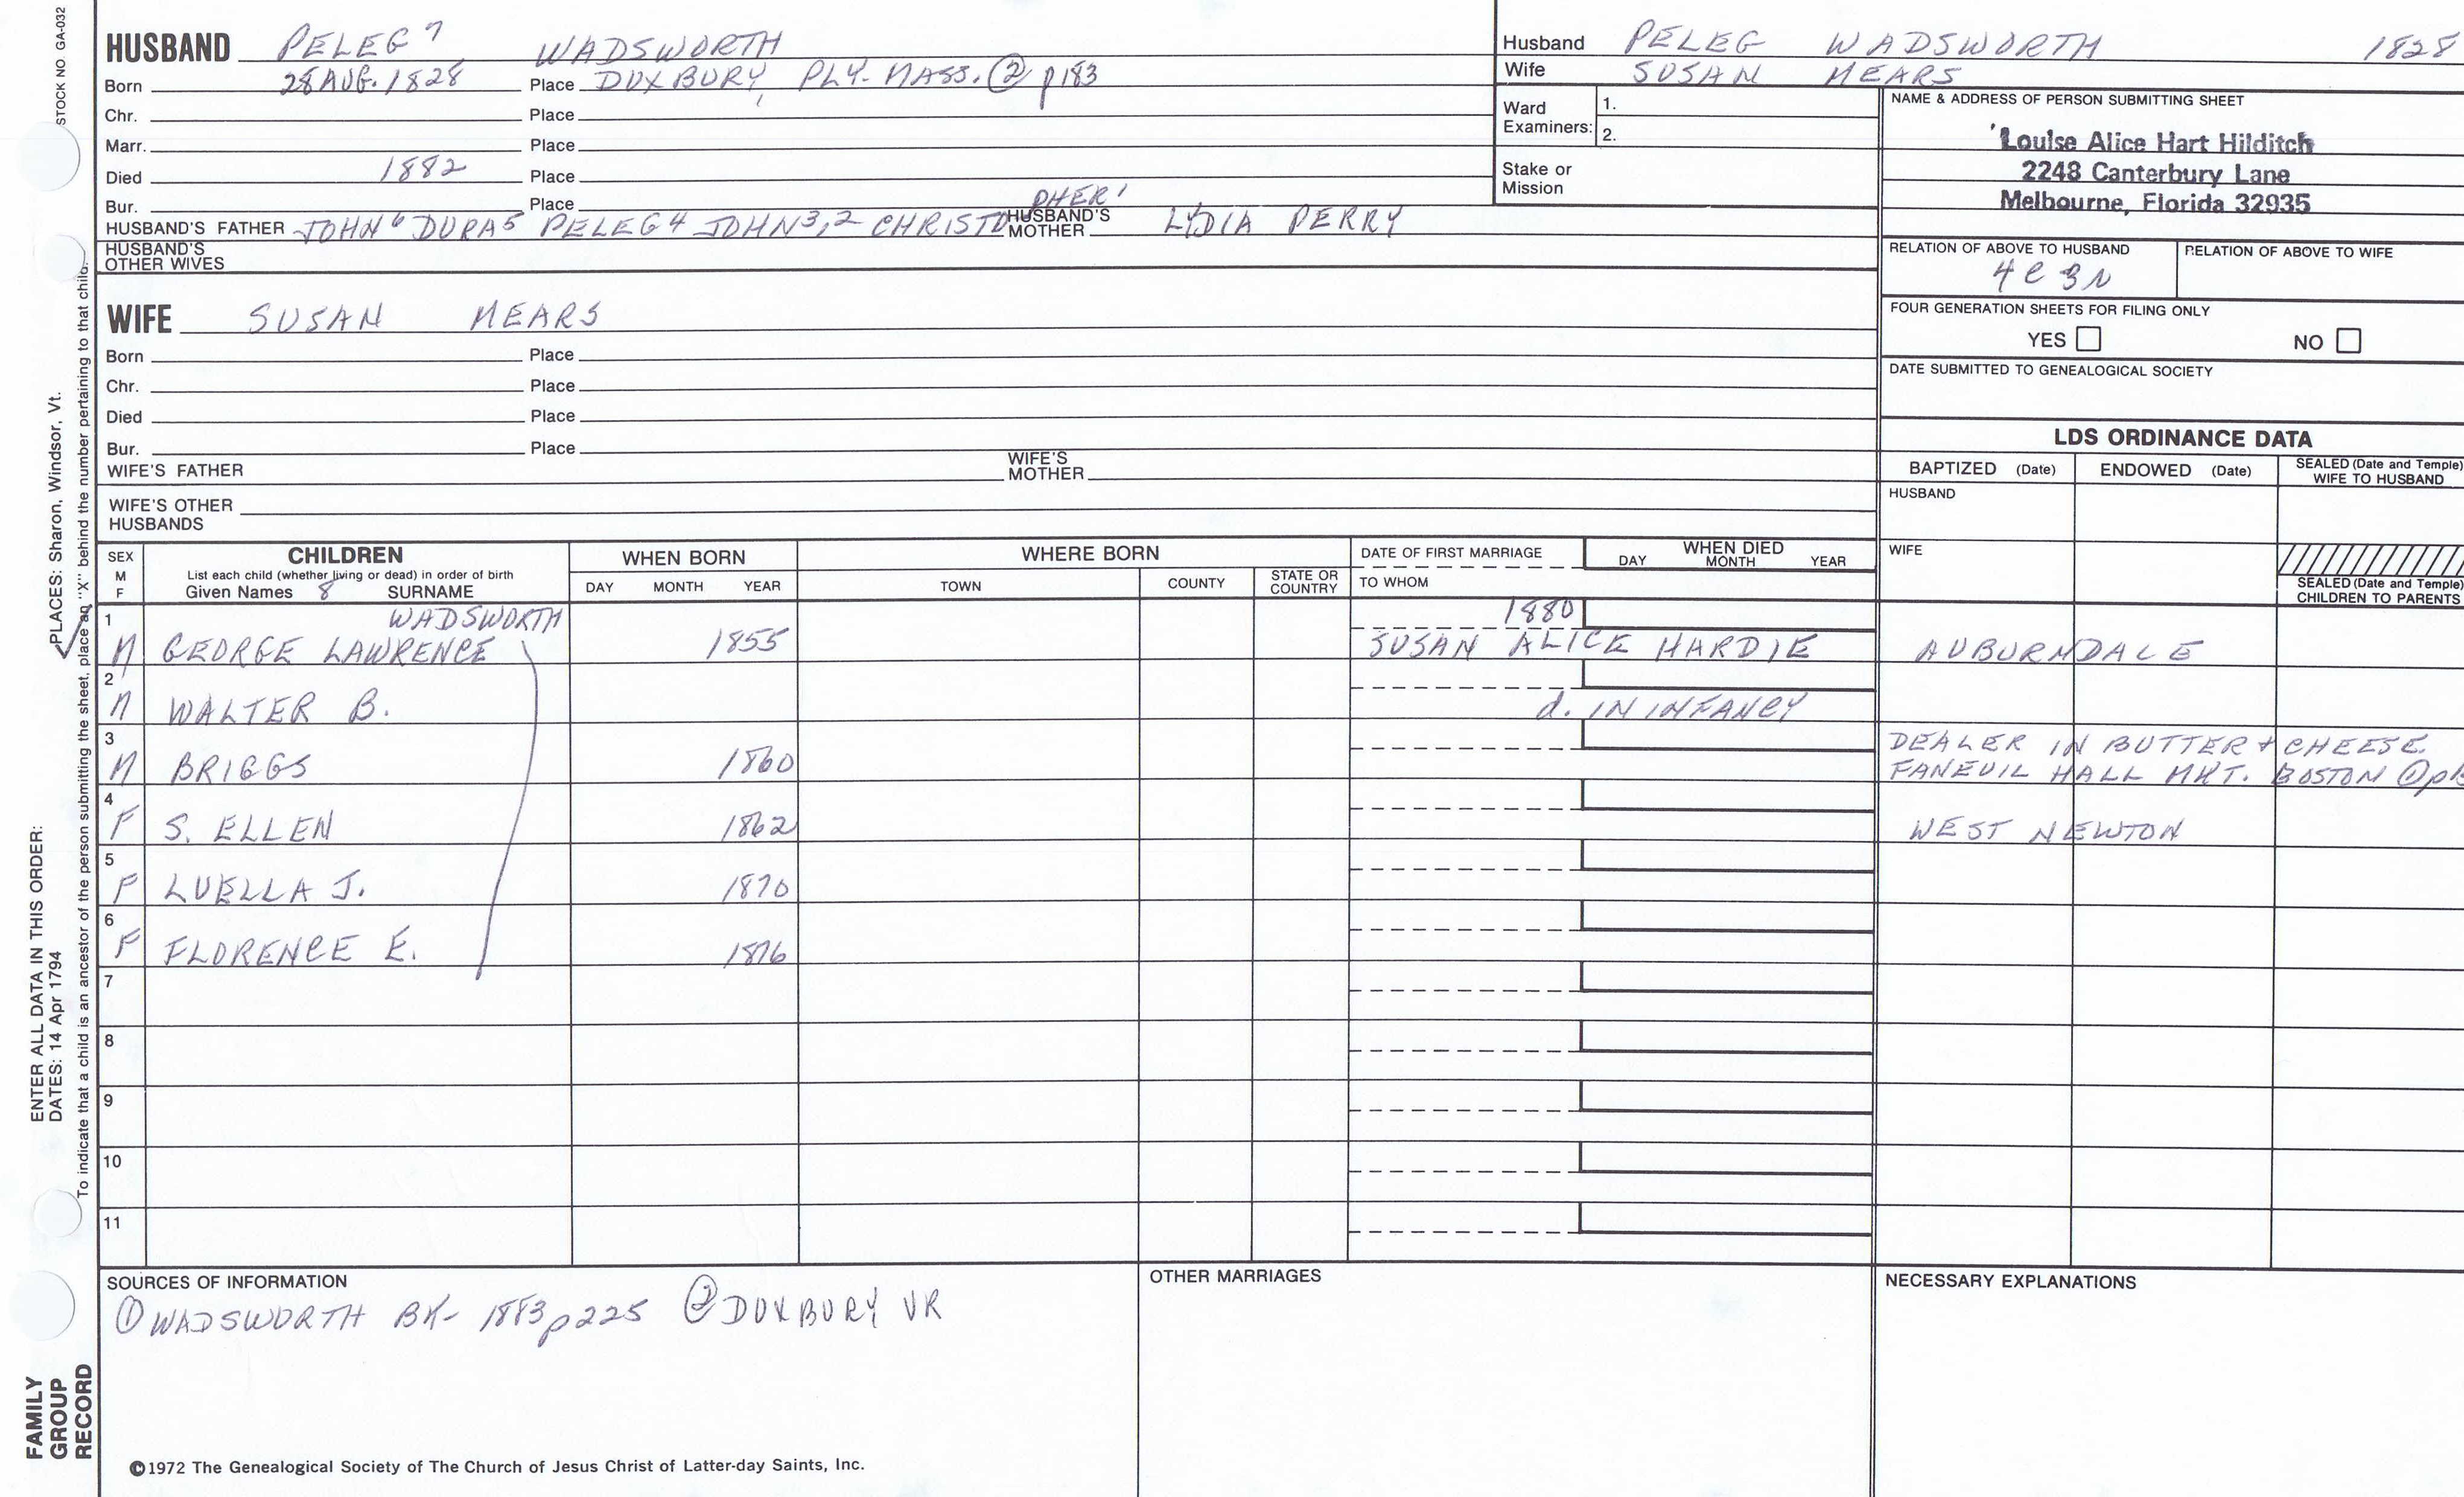 STOCK NO GA-032
PLACES: Sharon, Windsor, Vt.
ENTER ALL DATA IN THIS ORDER:
DATES: 14 Apr 1794
To indicate that a child is an ancestor of the person submitting the sheet, place an "X" behind the number pertaining to that child.
FAMILY
GROUP
RECORD
HUSBAND PELEG 7 WADSWORTH
Born 28 AUG. 1828 Place DUXBURY, PLY- MASS. ② p183
Chr. Place
Marr. Place
Died 1882 Place
Bur. Place
HUSBAND'S FATHER JOHN 6 DURA 5 PELEG 4 JOHN 3,2 CHRISTOPHER 1 HUSBAND'S MOTHER LYDIA PERRY
HUSBAND'S
OTHER WIVES
WIFE SUSAN MEARS
Born Place
Chr. Place
Died Place
Bur. Place
WIFE'S FATHER WIFE'S MOTHER
WIFE'S OTHER
HUSBANDS
Husband PELEG WADSWORTH 1828
Wife SUSAN MEARS
Ward
Examiners:
1.
2.
Stake or
Mission
NAME & ADDRESS OF PERSON SUBMITTING SHEET
Louise Alice Hart Hilditch
2248 Canterbury Lane
Melbourne, Florida 32935
RELATION OF ABOVE TO HUSBAND RELATION OF ABOVE TO WIFE
4C 3R
FOUR GENERATION SHEETS FOR FILING ONLY
YES NO
DATE SUBMITTED TO GENEALOGICAL SOCIETY
LDS ORDINANCE DATA
BAPTIZED (Date) ENDOWED (Date) SEALED (Date and Temple) WIFE TO HUSBAND
HUSBAND
WIFE
SEALED (Date and Temple)
CHILDREN TO PARENTS
SEX
M
F
CHILDREN
List each child (whether living or dead) in order of birth
Given Names 8 SURNAME
WHEN BORN
DAY MONTH YEAR
WHERE BORN
TOWN COUNTY STATE OR COUNTRY
DATE OF FIRST MARRIAGE
TO WHOM
WHEN DIED
DAY MONTH YEAR
1 WADSWORTH 1880
M GEORGE LAWRENCE 1855 SUSAN ALICE HARDIE AUBURNDALE
2
M WALTER B. d. IN INFANCY
3 DEALER IN BUTTER + CHEESE
M BRIGGS 1860 FANEUIL HALL MKT. BOSTON ①
4
F S. ELLEN 1862 WEST NEWTON
5
F LUELLA J. 1870
6
F FLORENCE E. 1876
7
8
9
10
11
SOURCES OF INFORMATION
① WADSWORTH BK- 1883 p225 ② DUXBURY VR
OTHER MARRIAGES
NECESSARY EXPLANATIONS
©1972 The Genealogical Society of The Church of Jesus Christ of Latter-day Saints, Inc.